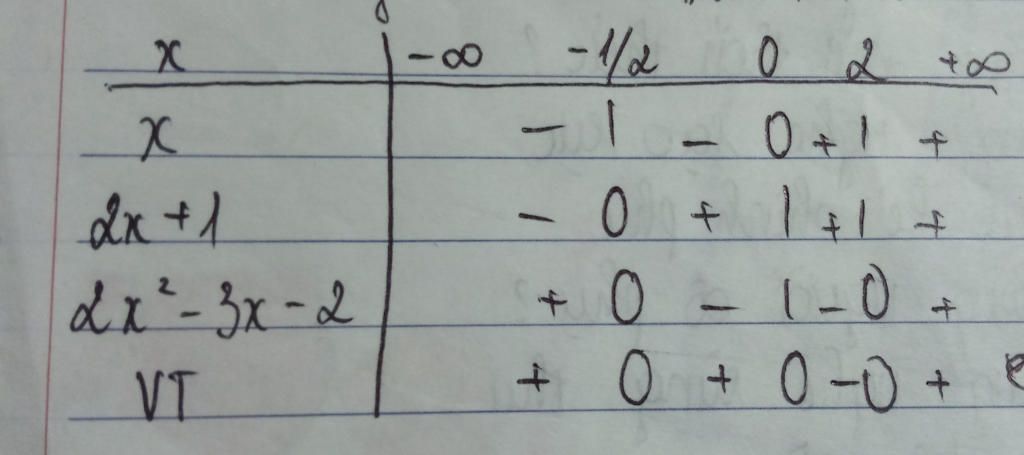 x | -∞ -1/2 0 2 +∞
x | - | - 0 + | +
2x + 1 | - 0 + | + | +
2x² - 3x - 2 | + 0 - | - 0 +
VT | + 0 + 0 - 0 +